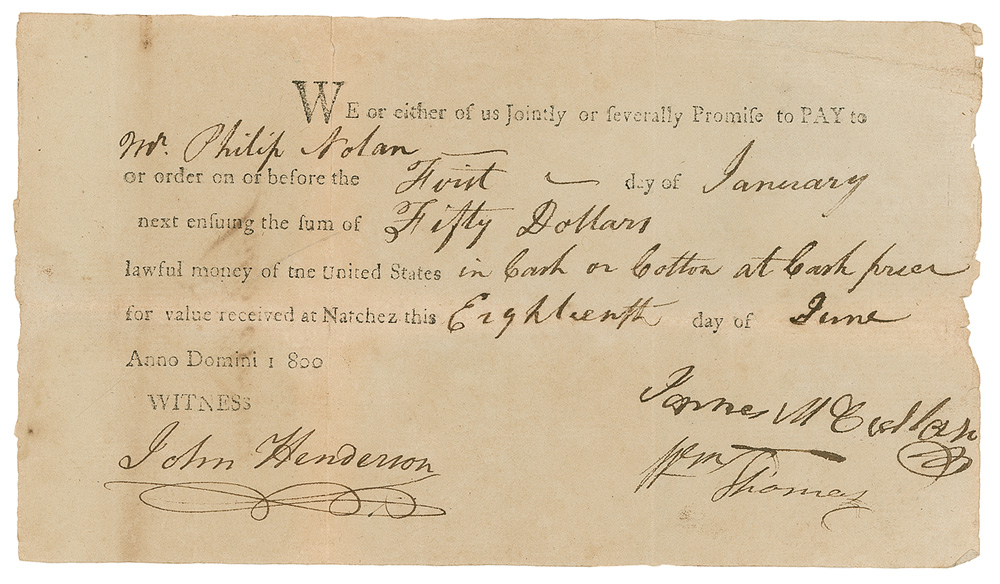 WE or either of us Jointly or ſeverally Promiſe to PAY to
Mr. Philip Nolan
or order on or before the First day of January
next enſuing the ſum of Fifty Dollars
lawful money of the United States in Cash or Cotton at Cash price
for value received at Natchez this Eighteenth day of June
Anno Domini 1 800
WITNESS
John Henderson
James
Wm Thomas